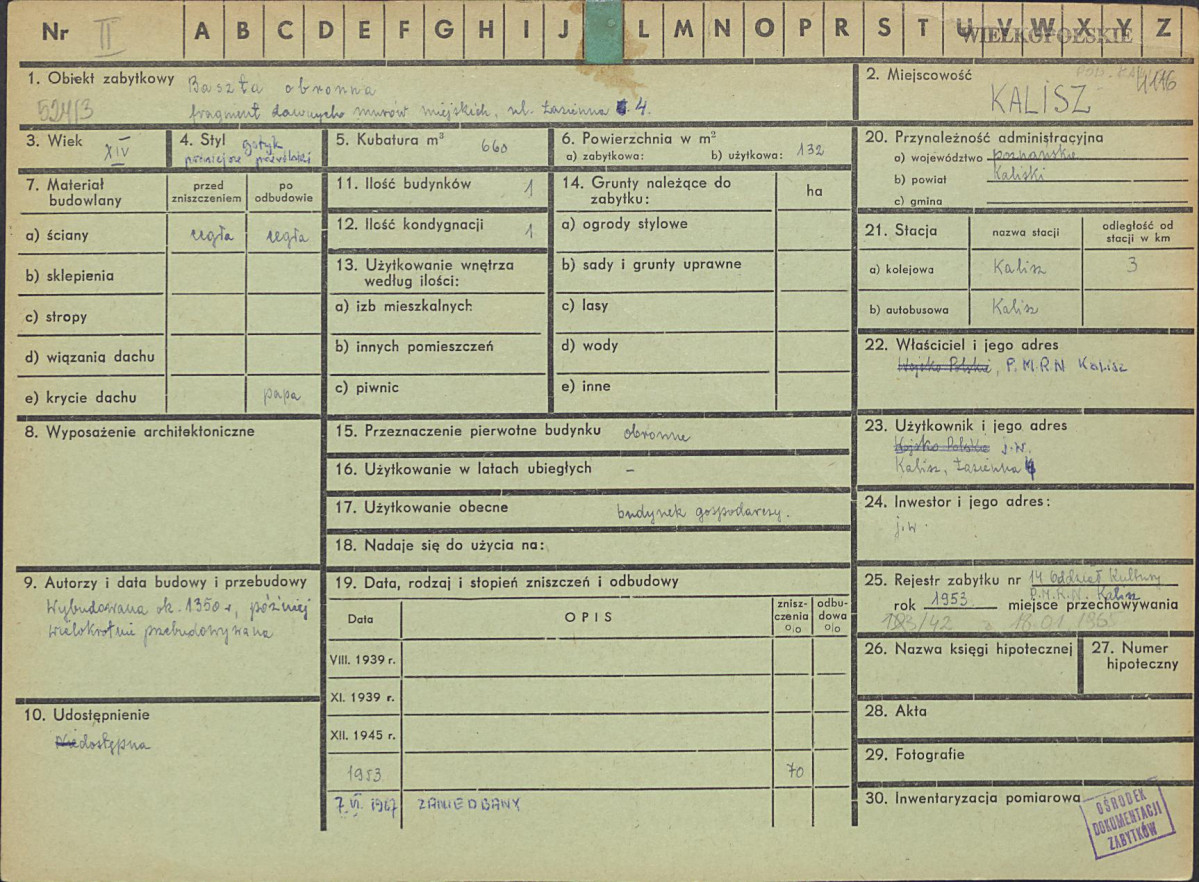 Nr II A B C D E F G H I J L M N O P R S T U V W X Y Z
WIELKOPOLSKIE
1. Obiekt zabytkowy Baszta obronna
524/3 fragment dawnych murów miejskich, ul. Łazienna 4.
2. Miejscowość
KALISZ
3. Wiek XIV
4. Styl gotyk
późniejsze przeróbki
5. Kubatura m³ 660
6. Powierzchnia w m²
a) zabytkowa: b) użytkowa: 132
7. Materiał budowlany
przed zniszczeniem
po odbudowie
a) ściany cegła cegła
b) sklepienia
c) stropy
d) wiązania dachu
e) krycie dachu papa
8. Wyposażenie architektoniczne
9. Autorzy i data budowy i przebudowy
Wybudowana ok. 1350 r, później
wielokrotnie przebudowywana
10. Udostępnienie
Niedostępna
11. Ilość budynków 1
12. Ilość kondygnacji 1
13. Użytkowanie wnętrza
według ilości:
a) izb mieszkalnych
b) innych pomieszczeń
c) piwnic
14. Grunty należące do
zabytku: ha
a) ogrody stylowe
b) sady i grunty uprawne
c) lasy
d) wody
e) inne
15. Przeznaczenie pierwotne budynku obronne
16. Użytkowanie w latach ubiegłych –
17. Użytkowanie obecne budynek gospodarczy.
18. Nadaje się do użycia na:
19. Data, rodzaj i stopień zniszczeń i odbudowy
Data OPIS znisz-
czenia
o/o odbu-
dowa
o/o
VIII. 1939 r.
XI. 1939 r.
XII. 1945 r.
1953 70
7.VI. 1967 ZANIEDBANY
20. Przynależność administracyjna
a) województwo poznańskie
b) powiat Kaliski
c) gmina
21. Stacja nazwa stacji odległość od
stacji w km
a) kolejowa Kalisz 3
b) autobusowa Kalisz
22. Właściciel i jego adres
Wojsko Polskie, P.M.R.N Kalisz
23. Użytkownik i jego adres
Wojsko Polskie j.w.
Kalisz, Łazienna 4
24. Inwestor i jego adres:
j.w.
25. Rejestr zabytku nr 14 Oddział Kultury
P.M.R.N. Kalisz
rok 1953 miejsce przechowywania
z 18.01.1965
26. Nazwa księgi hipotecznej
27. Numer
hipoteczny
28. Akta
29. Fotografie
30. Inwentaryzacja pomiarowa
OŚRODEK
DOKUMENTACJI
ZABYTKÓW